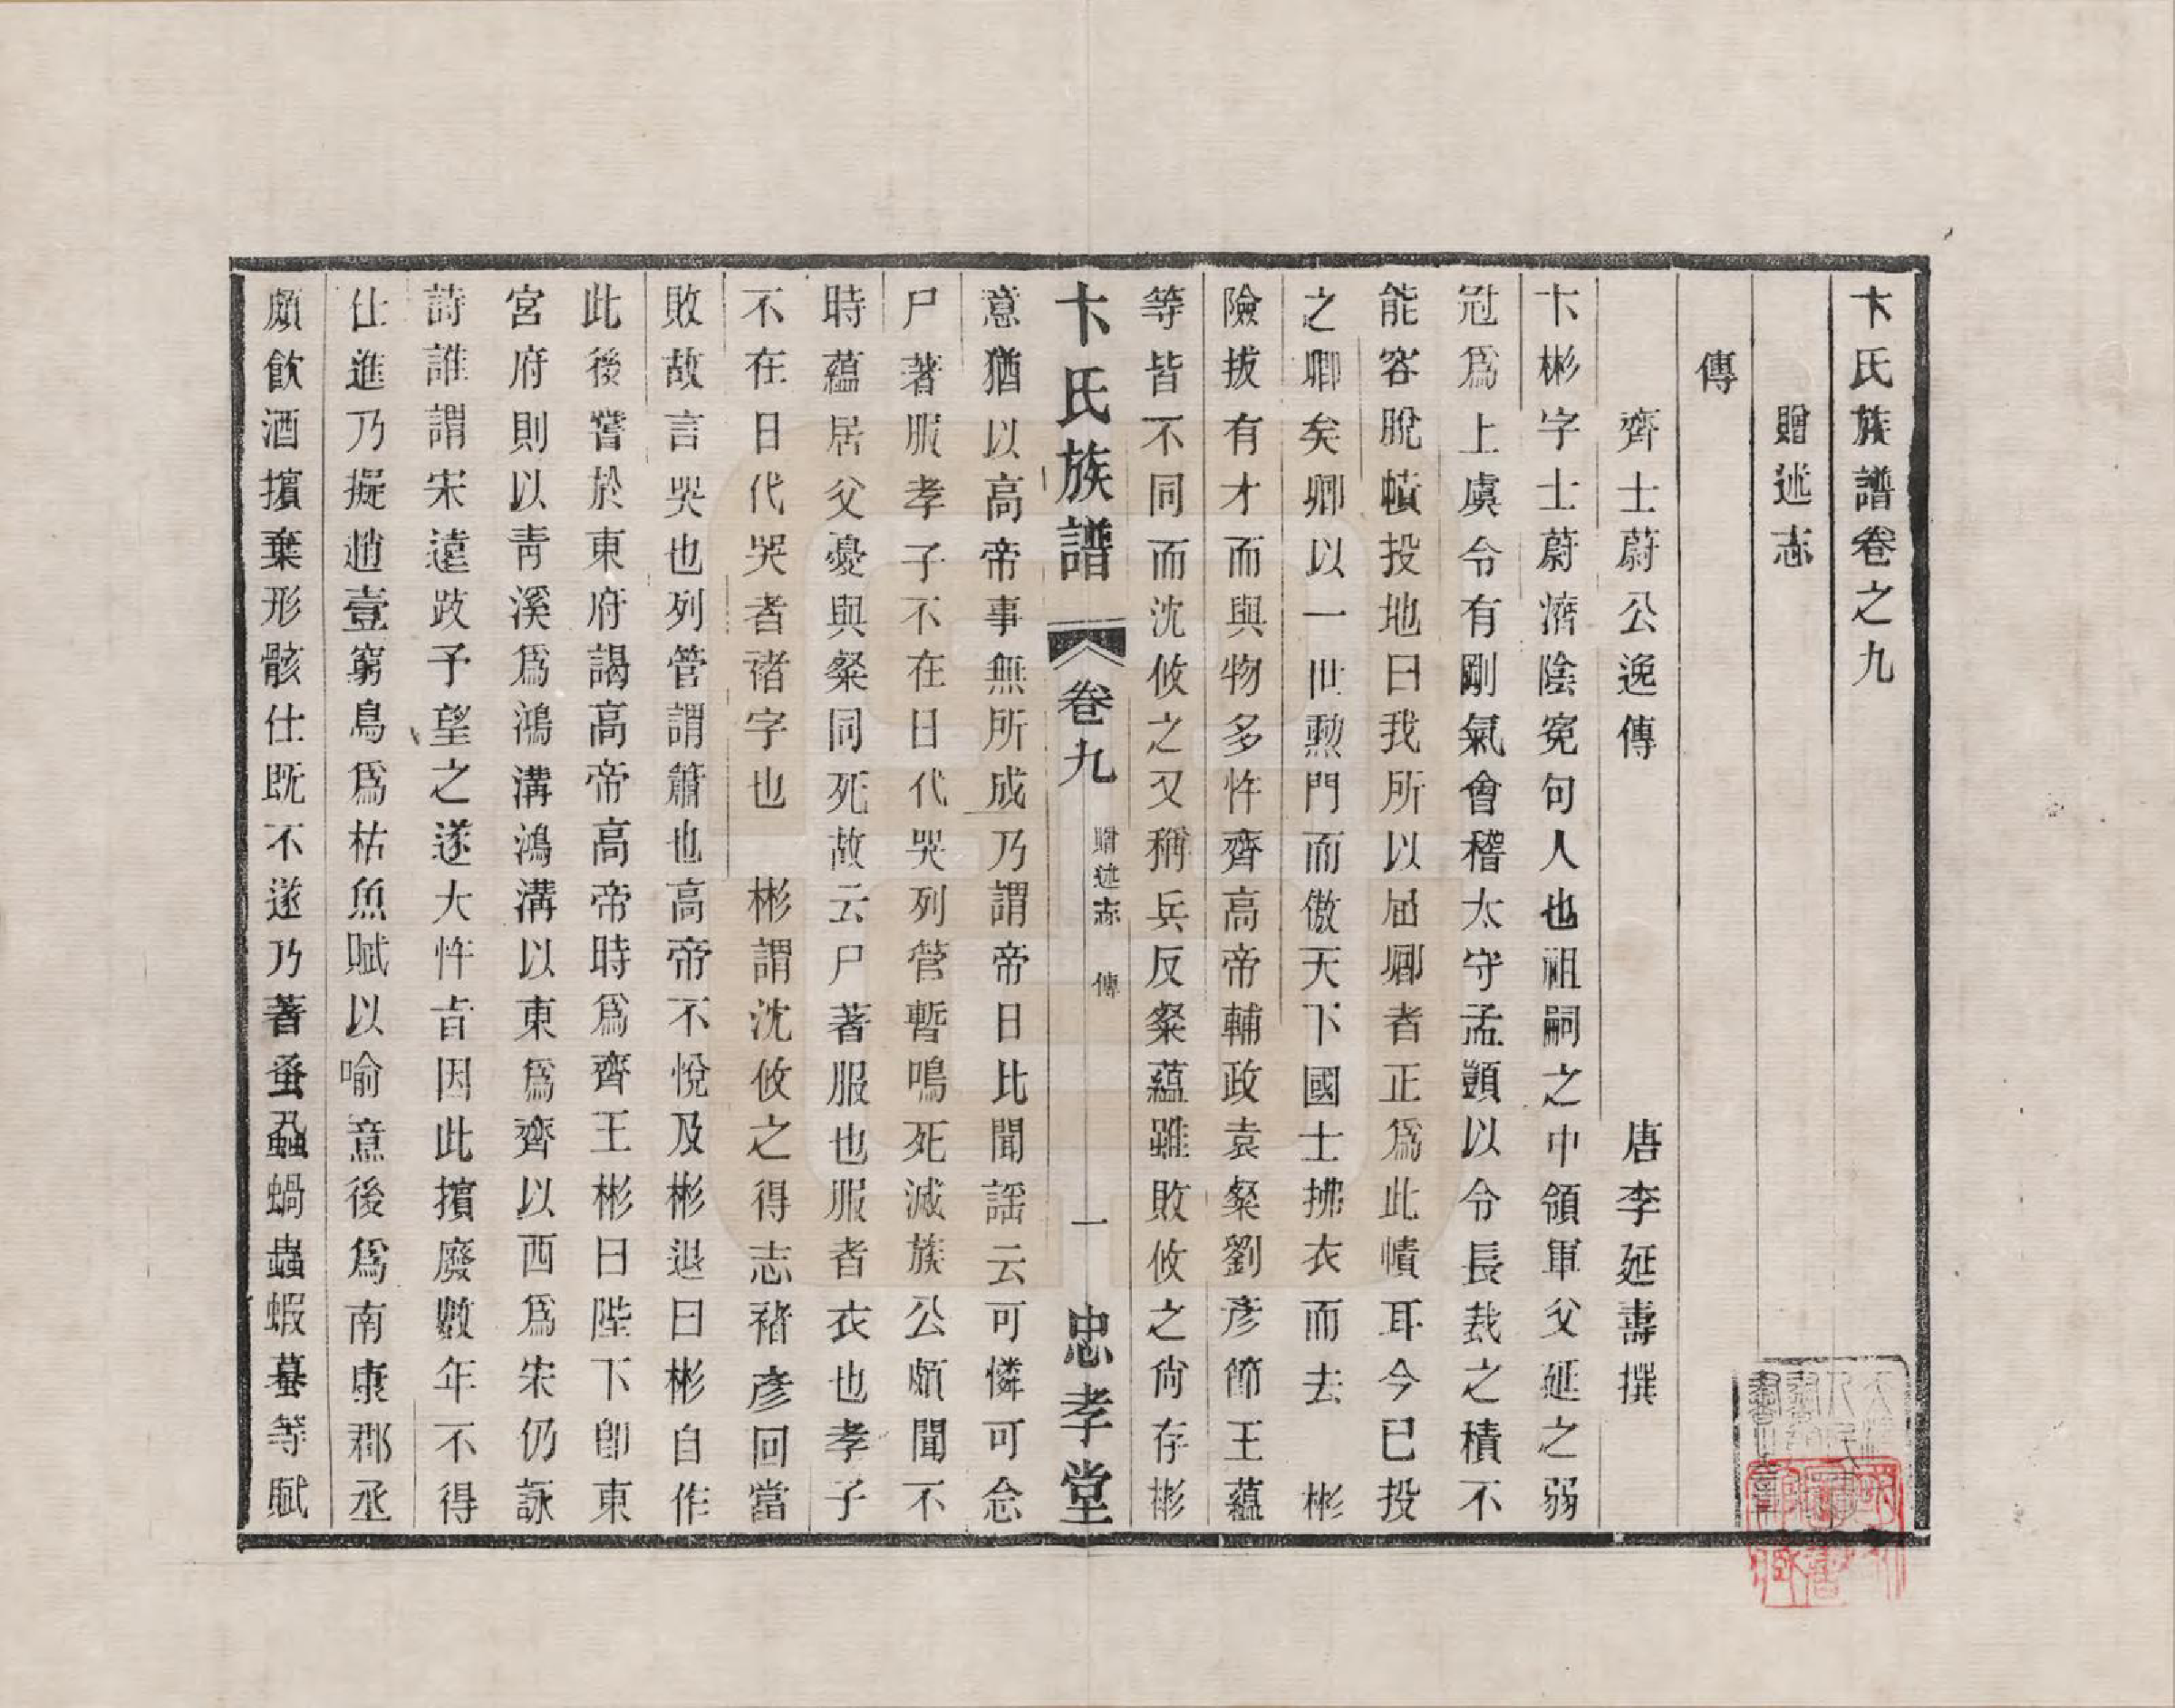 卞氏族譜卷之九
贈述志
傳
齊士蔚公逸傳 唐李延壽撰
卞彬字士蔚濟陰冤句人也祖嗣之中領軍父延之弱
冠爲上虞令有剛氣會稽太守孟顗以令長裁之積不
能容脫幘投地曰我所以屈卿者正爲此幘耳今已投
之卿矣卿以一世勲門而傲天下國士拂衣而去 彬
險拔有才而與物多忤齊高帝輔政袁粲劉彥節王蘊
等皆不同而沈攸之又稱兵反粲蘊雖敗攸之尙存彬
卞氏族譜 卷九 贈述志 傳 一 忠孝堂
意猶以高帝事無所成乃謂帝曰比聞謡云可憐可念
尸著服孝子不在日代哭列管暫鳴死滅族公頗聞不
時蘊居父憂與粲同死故云尸著服也服者衣也孝子
不在日代哭者褚字也 彬謂沈攸之得志褚彥回當
敗故言哭也列管謂簫也高帝不悅及彬退曰彬自作
此後嘗於東府謁高帝高帝時爲齊王彬曰陛下卽東
宮府則以靑溪爲鴻溝鴻溝以東爲齊以西爲宋仍詠
詩誰謂宋遠跂予望之遂大忤旨因此擯廢數年不得
仕進乃擬趙壹窮鳥爲枯魚賦以喻意後爲南康郡丞
頗飮酒擯棄形骸仕既不遂乃著蚤蝨蝸蟲蝦蟇等賦